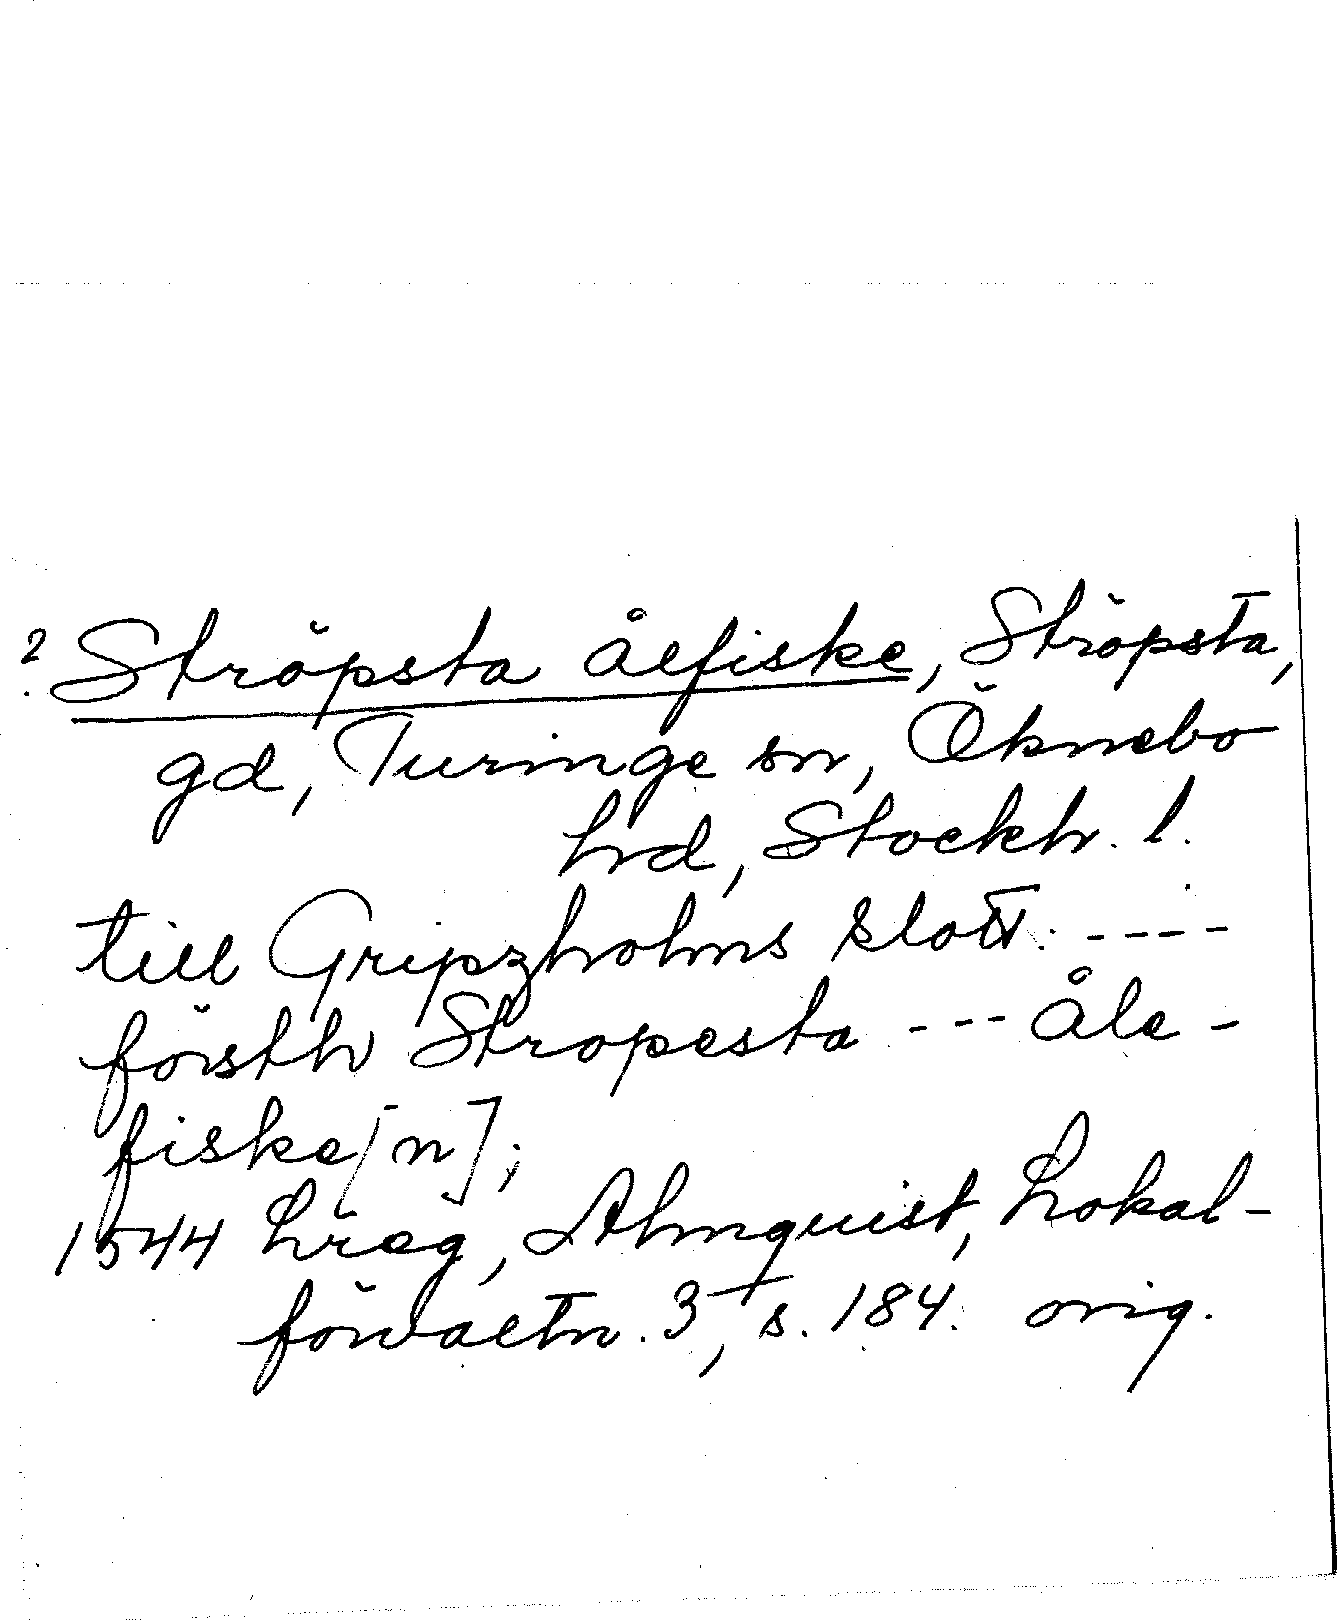 ? Ströpsta ålfiske, Ströpsta,
gd, Turinge sn, Öknebo
hrd, Stockh. l.
till Gripzholms slott. ----
försth Stropesta --- Åle-
fiske[n];
1544 Lräg, Almquist, Lokal-
förvaltn. 3, s. 184. orig.